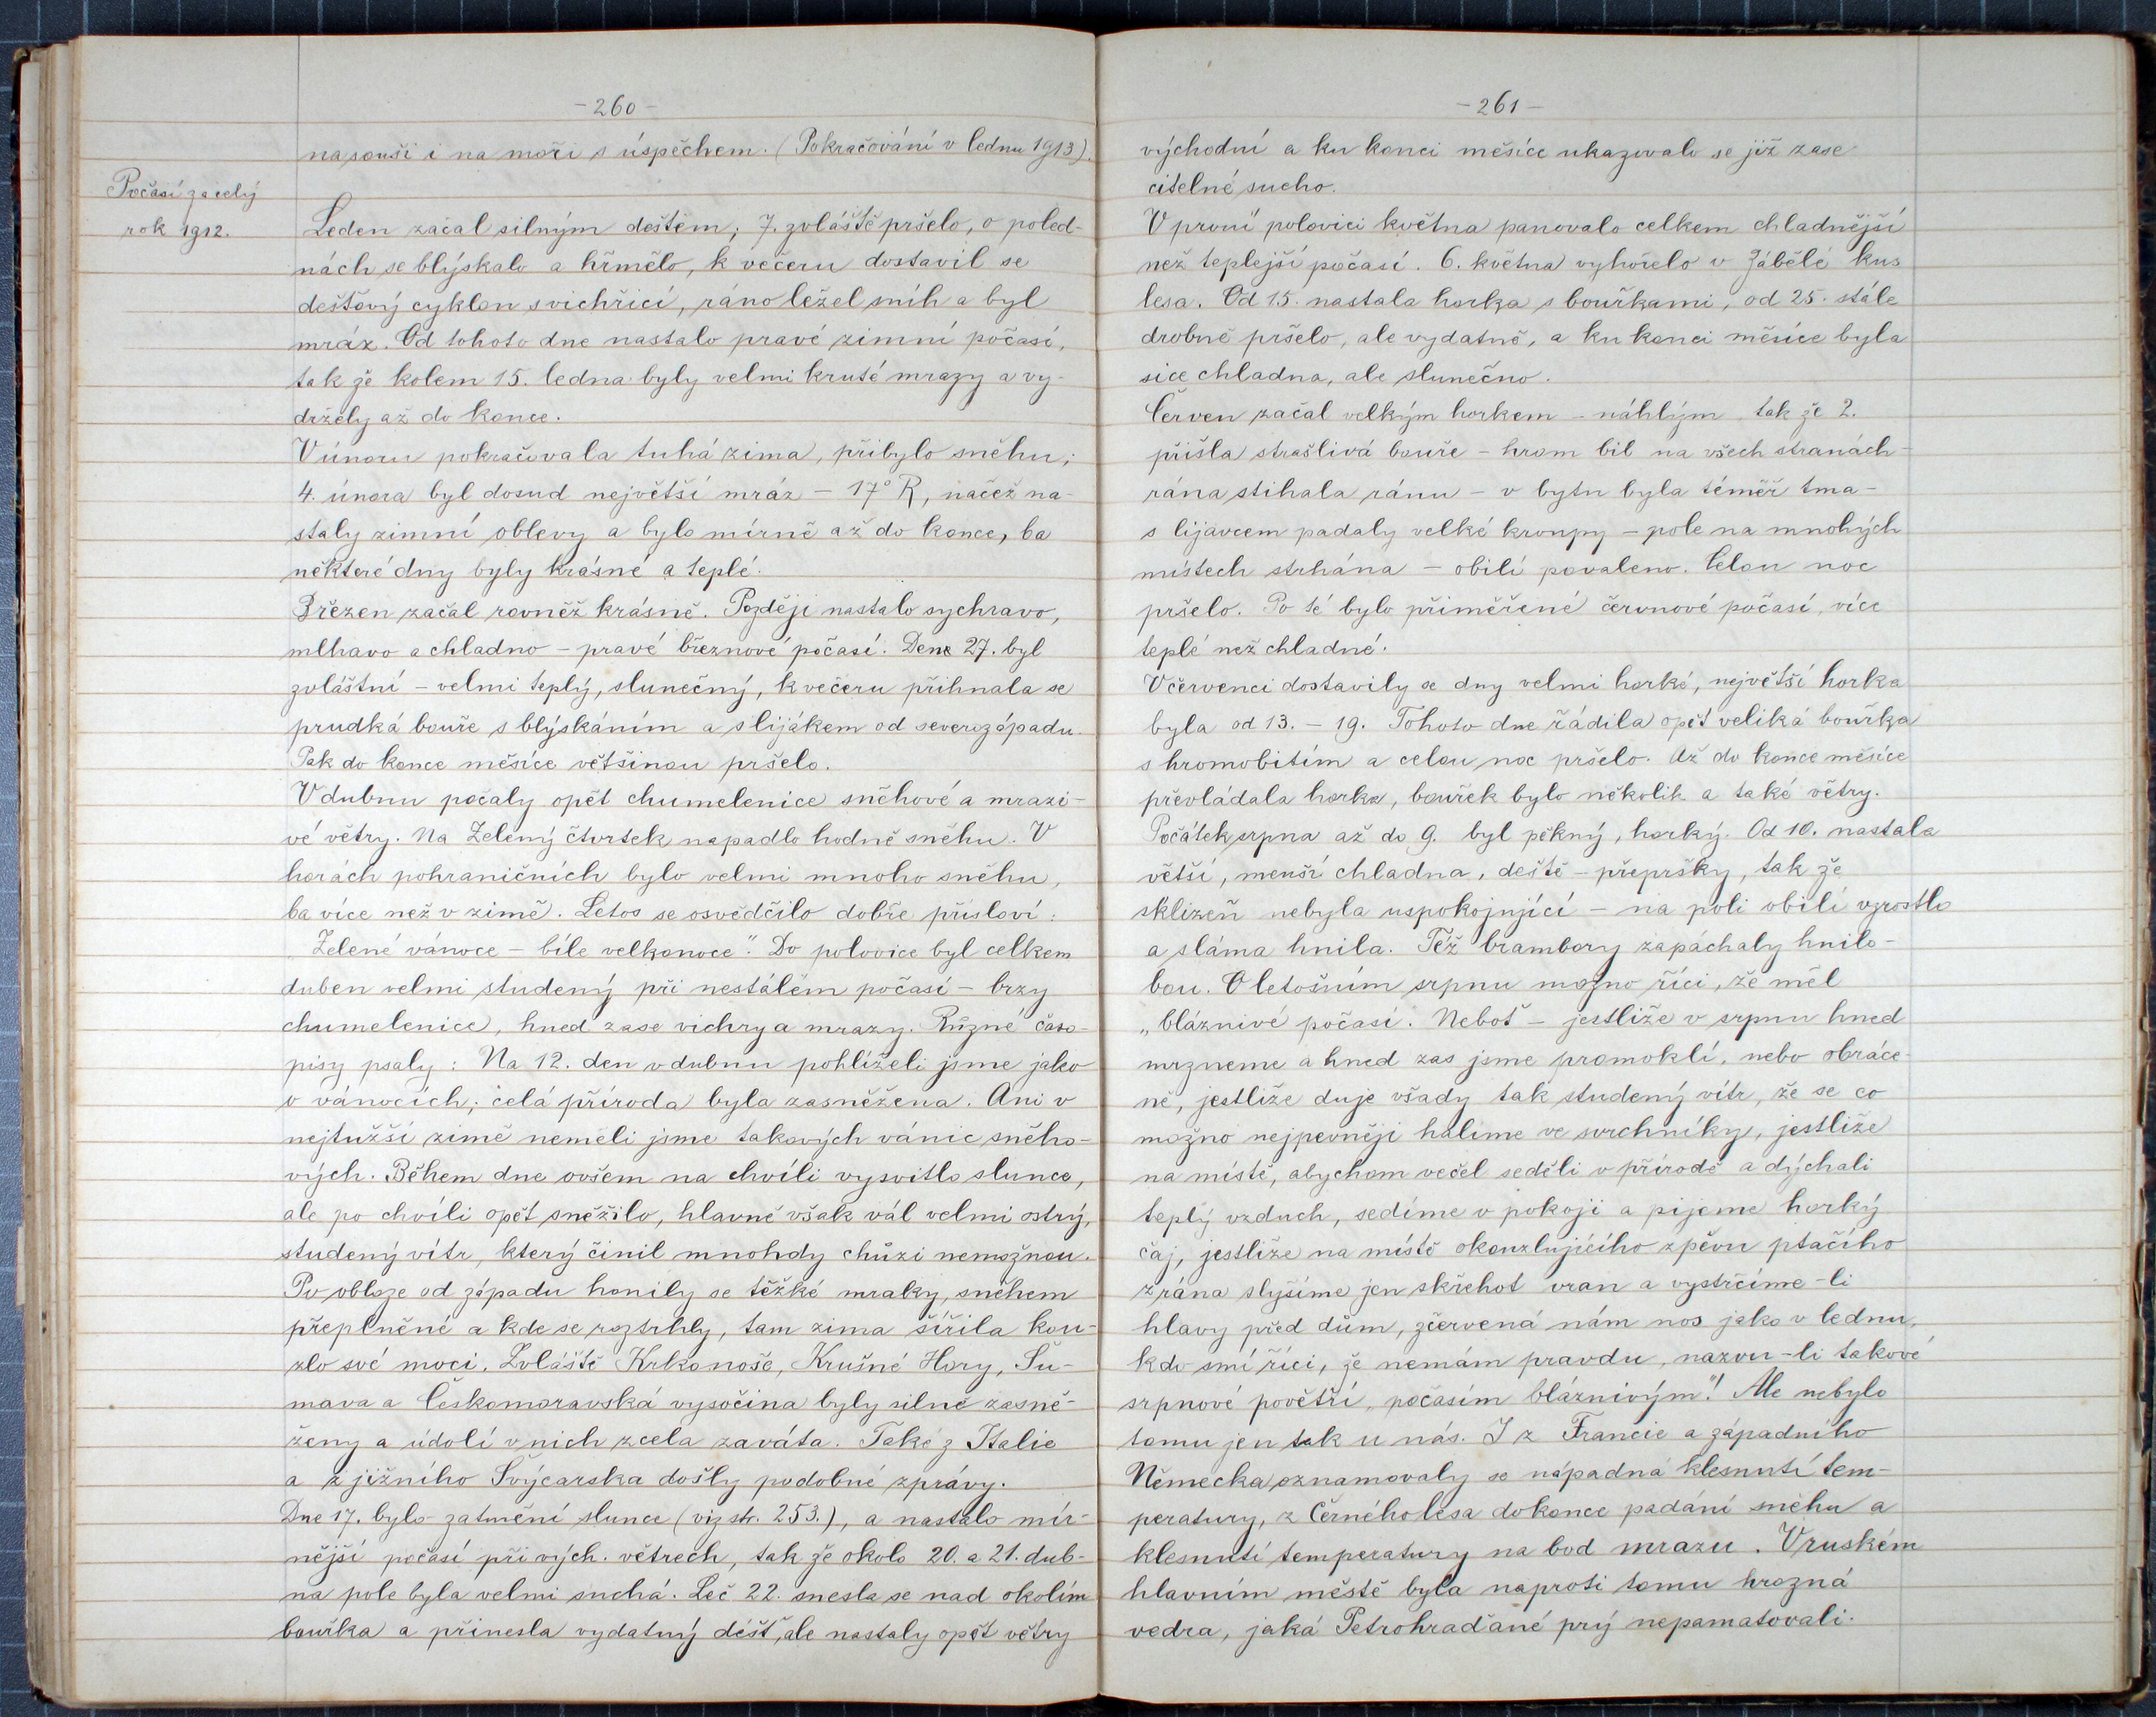 -260-
na souši i na moři s úspěchem. (Pokračování v lednu 1913).
Počasí za celý
rok 1912.
Leden začal silným deštěm; 7. zvláště pršelo, o poled-
nách se blýskalo a hřmělo, k večeru dostavil se
dešťový cyklon s vichřicí, ráno ležel sníh a byl
mráz. Od tohoto dne nastalo pravé zimní počasí,
tak že kolem 15. ledna byly velmi kruté mrazy a vy-
držely až do konce.
V únoru pokračovala tuhá zima, přibylo sněhu;
4. února byl dosud největší mráz - 17° R, načež na-
staly zimní oblevy a bylo mírně až do konce, ba
některé dny byly krásné a teplé.
Březen začal rovněž krásně. Později nastalo sychravo,
mlhavo a chladno - pravé březnové počasí. Dene 27. byl
zvláštní - velmi teplý, slunečný, k večeru přihnala se
prudká bouře s blýskáním a s lijákem od severozápadu.
Pak do konce měsíce většinou pršelo.
V dubnu počaly opět chumelenice sněhové a mrazi-
vé větry. Na Zelený čtvrtek napadlo hodně sněhu. V
horách pohraničních bylo velmi mnoho sněhu,
ba více než v zimě. Letos se osvědčilo dobře přísloví:
„Zelené vánoce - bíle velkonoce". Do polovice byl celkem
duben velmi studený při nestálém počasí - brzy
chumelenice, hned zase vichry a mrazy. Různé časo-
pisy psaly: Na 12. den v dubnu pohlíželi jsme jako
o vánocích; celá příroda byla zasněžena. Ani v
nejtužší zimě neměli jsme takových vánic sněho-
vých. Během dne ovšem na chvíli vysvitlo slunce,
ale po chvíli opět sněžilo, hlavně však vál velmi ostrý,
studený vítr, který činil mnohdy chůzi nemožnou.
Po obloze od západu honily se těžké mraky, sněhem
přeplněné a kde se roztrhly, tam zima šířila kou-
zlo své moci. Zvláště Krkonoše, Krušné Hory, Šu-
mava a Českomoravská vysočina byly silně zasně-
ženy a údolí v nich zcela zaváta. Také z Italie
a z jižního Švýcarska došly podobné zprávy.
Dne 17. bylo zatmění slunce (viz str. 253.), a nastalo mír-
nější počasí při vých. větrech, tak že okolo 20. a 21. dub-
na pole byla velmi suchá. Leč 22. snesla se nad okolím
bouřka a přinesla vydatný déšť, ale nastaly opět větry
-261-
východní a ku konci měsíce ukazovalo se již zase
citelné sucho.
V první polovici května panovalo celkem chladnější
než teplejší počasí. 6. května vyhořelo v Zábělé kus
lesa. Od 15. nastala horka s bouřkami, od 25. stále
drobně pršelo, ale vydatně, a ku konci měsíce byla
sice chladna, ale slunečno.
Červen začal velkým horkem - náhlým, tak že 2.
přišla strašlivá bouře - hrom bil na všech stranách -
rána stíhala ránu - v bytu byla téměř tma -
s lijavcem padaly velké kroupy - pole na mnohých
místech strhána - obilí povaleno. Celou noc
pršelo. Po té bylo přiměřené červnové počasí, více
teplé než chladné.
V červenci dostavily se dny velmi horké, největší horka
byla od 13. - 19. Tohoto dne řádila opět veliká bouřka
s hromobitím a celou noc pršelo. Až do konce měsíce
převládala horka, bouřek bylo několik a také větry.
Počátek srpna až do 9. byl pěkný, horký. Od 10. nastala
větší, menší chladna, deště - přepršky, tak že
sklizeň nebyla uspokojující - na poli obilí vzrostlo
a sláma hnila. Též brambory zapáchaly hnilo-
bou. O letošním srpnu možno říci, že měl
„bláznivé počasí. Neboť - jestliže v srpnu hned
mrzneme a hned zas jsme promoklí, nebo obráce-
ně, jestliže duje všady tak studený vítr, že se co
možno nejpevněji halíme ve svrchníky, jestliže
na místě, abychom večeř seděli v přírodě a dýchali
teplý vzduch, sedíme v pokoji a pijeme horký
čaj, jestliže na místě okouzlujícího zpěvu ptačího
z rána slyšíme jen skřehot vran a vystrčíme-li
hlavy před dům, zčervená nám nos jako v lednu,
kdo smí říci, že nemám pravdu, nazvu-li takové
srpnové povětří „počasím bláznivým"! Ale nebylo
tomu jen tak u nás. I z Francie a západního
Německa oznamovaly se nápadná klesnutí tem-
peratury, z Černého lesa dokonce padání sněhu a
klesnutí temperatury na bod mrazu. V ruském
hlavním městě byla naproti tomu hrozná
vedra, jaká Petrohraďané prý nepamatovali.